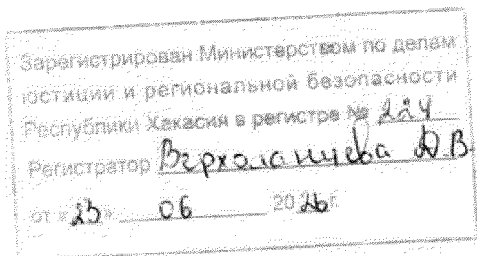 Зарегистрирован Министерством по делам
юстиции и региональной безопасности
Республики Хакасия в регистре № 224
Регистратор Верхоланцева Д.В.
от «23» 06 2026 г.